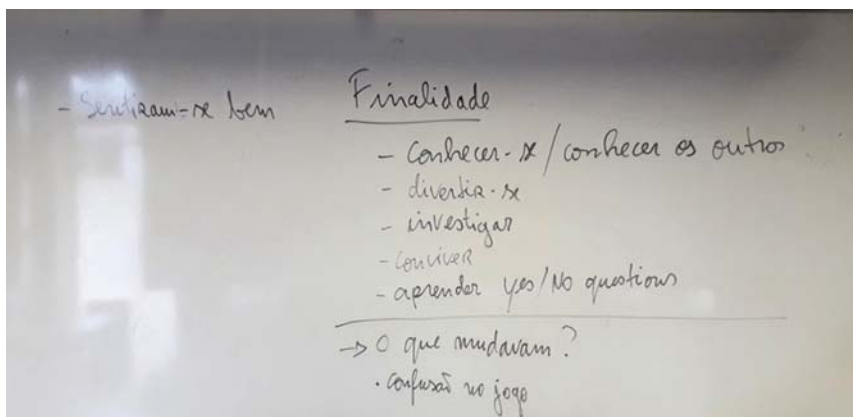 - Sentiram-se bem
Finalidade
- Conhecer-se / conhecer os outros
- divertir-se
- investigar
- conviver
- aprender yes/No questions
→ O que mudavam?
• confusão no jogo